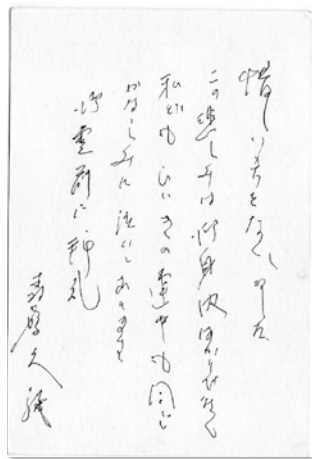 惜しい方をなくしました
この悲しみは御身内ばかりでなく
私ども ひいきの連中も同じ
かなしみに泣いております
御霊前に 拝礼